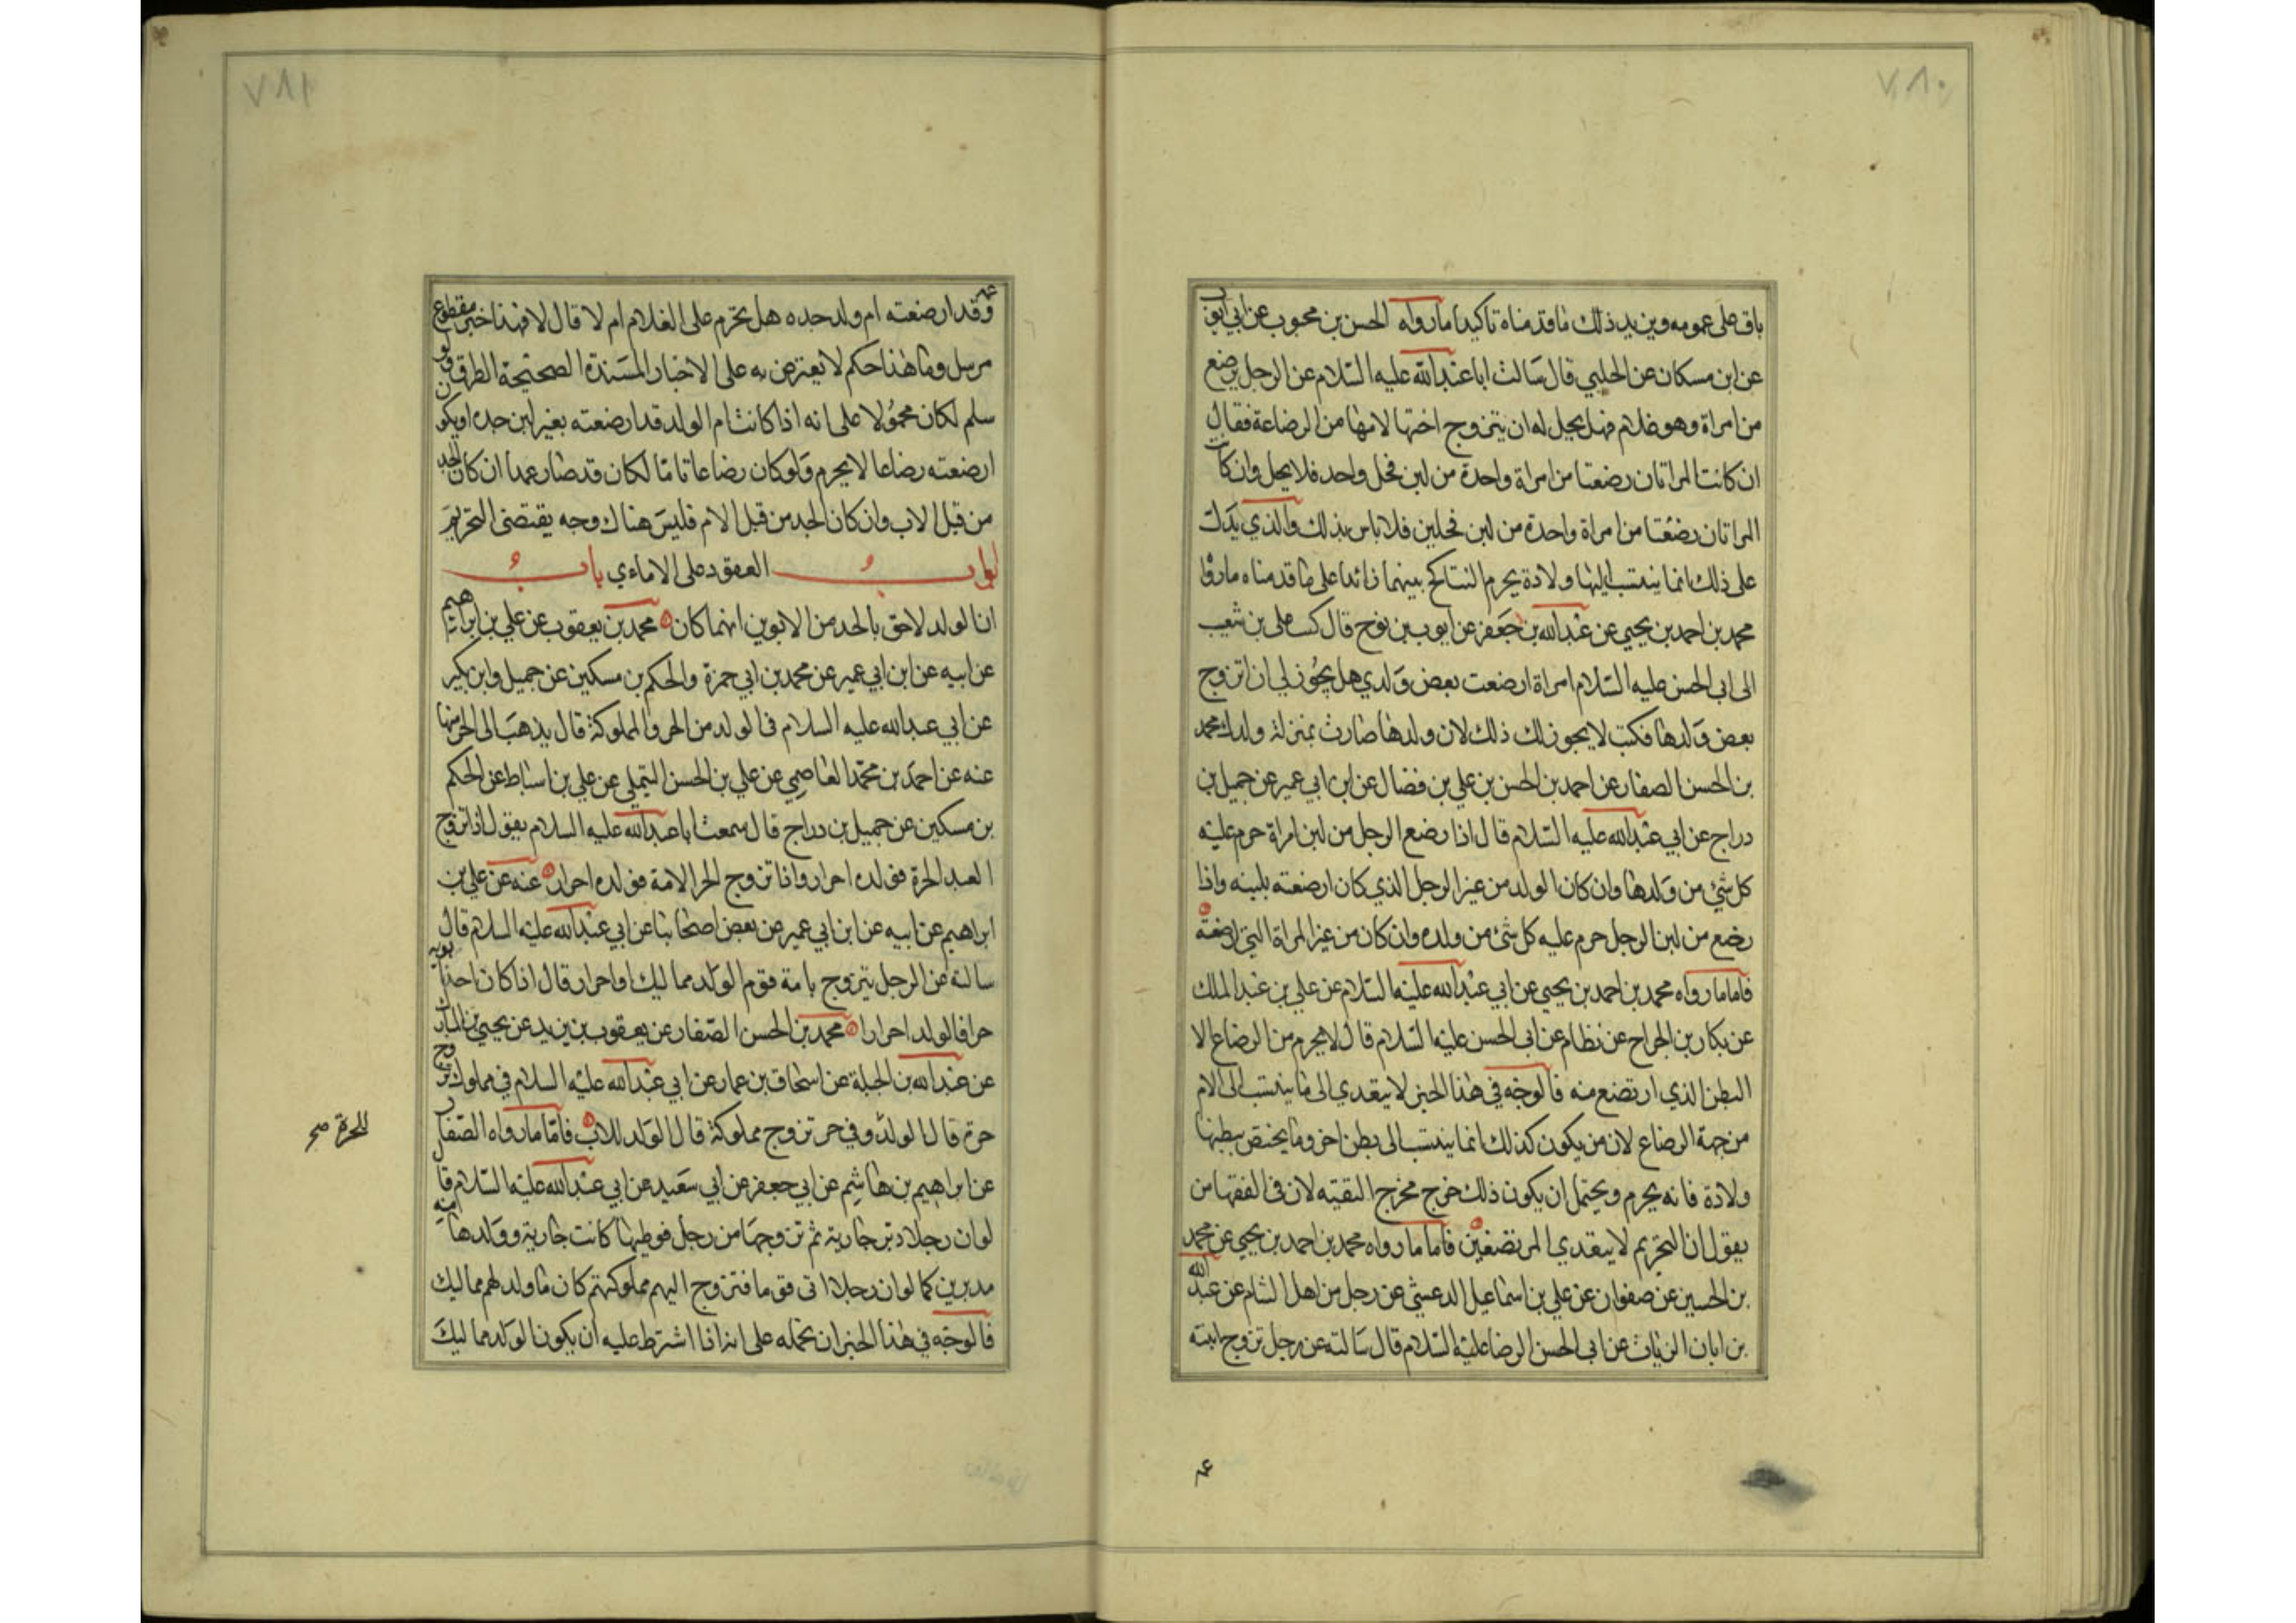 ٧٨٠
باق على عمومه ويزيد ذلك ما قدمناه تاكيدا ما رواه الحسن بن محبوب عن ابي ايوب
عن ابن مسكان عن الحلبي قال سالت ابا عبدالله عليه السلام عن الرجل يرضع
من امراة وهو غلام فهل يحل له ان يتزوج اختها لامها من الرضاعة فقال
ان كانت المراتان رضعتا من امراة واحدة من لبن فحل واحد فلا يحل وان كانت
المراتان رضعتا من امراة واحدة من لبن فحلين فلا باس بذلك والذي يدل
على ذلك انما ينتسب اليها ولادة يحرم التناكح بينهما زائدا على ما قدمناه مارواه
محمد بن احمد بن يحيى عن عبدالله بن جعفر عن ايوب بن نوح قال كتب علي بن شعيب
الى ابي الحسن عليه السلام امراة ارضعت بعض ولدي هل يجوز لي ان اتزوج
بعض ولدها فكتب لا يجوز لك ذلك لان ولدها صارت بمنزلة ولدك محمد
بن الحسن الصفار عن احمد بن الحسن بن علي بن فضال عن ابن ابي عمير عن جميل بن
دراج عن ابي عبدالله عليه السلام قال اذا رضع الرجل من لبن امراة حرم عليه
كل شئ من ولدها وان كان الولد من غير الرجل الذي كان ارضعته بلبنه واذا
رضع من لبن الرجل حرم عليه كل شئ من ولده وان كان من غير المراة التي ارضعته
فاما ما رواه محمد بن احمد بن يحيى عن ابي عبدالله عليه السلام عن علي بن عبدالملك
عن بكار بن الجراح عن بظام عن ابي الحسن عليه السلام قال لا يحرم من الرضاع الا
البطن الذي ارتضع منه فالوجه في هذا الخبر لا يتعدي الى ما ينتسب الى الام
من جهة الرضاع لان من يكون كذلك انما ينتسب الى بطن اخر وما يختص ببطنها
ولادة فانه يحرم ويحتمل ان يكون ذلك خرج مخرج التقيه لان في الفقهاء من
يقول ان التحريم لا يتعدي المرتضعين فاما ما رواه محمد بن احمد بن يحيى عن محمد
بن الحسين عن صفوان عن علي بن اسماعيل الدعشي عن رجل من اهل الشام عن عبدالله
بن ابان الزيات عن ابي الحسن الرضا عليه السلام قال سالته عن رجل تزوج ابنة
عمه
٧٨١
عمه وقد ارضعته ام ولد جده هل يحرم على الغلام ام لا قال لا فهذا خبر مقطوع
مرسل وما هذا حكم لا يعترض به على الاخبار المسندة الصحيحة الطرق ولو
سلم لكان محمولا على انه اذا كانت ام الولد قد ارضعته بغير لبن جده او يكون
ارضعته رضاعا لا يحرم ولو كان رضاعا تاما لكان قد صار عما ان كان الجد
من قبل الاب وان كان الجد من قبل الام فليس هناك وجه يقتضي التحريم
ابواب العقود على الاماء باب
ان الولد لاحق بالحر من الابوين ايهما كان محمد بن يعقوب عن علي بن ابراهيم
عن ابيه عن ابن ابي عمير عن محمد بن ابي حمزة والحكم بن مسكين عن جميل وابن بكير
عن ابي عبدالله عليه السلام في الولد من الحر والمملوكة قال يذهب الى الحر منهما
عنه عن احمد بن محمد العاصمي عن علي بن الحسن التيملي عن علي بن اسباط عن الحكم
بن مسكين عن جميل بن دراج قال سمعت ابا عبدالله عليه السلام يقول اذا تزوج
العبد الحرة فولده احرار واذا تزوج الحر الامة فولده احرار عنه عن علي بن
ابراهيم عن ابيه عن ابن ابي عمير عن بعض اصحابنا عن ابي عبدالله عليه السلام قال
سالته عن الرجل يتزوج بامة قوم الولد مماليك او احرار قال اذا كان احد ابويه
حرا فالولد احرارا محمد بن الحسن الصفار عن يعقوب بن يزيد عن يحيى بن المبارك
عن عبدالله بن الجبلة عن اسحاق بن عمار عن ابي عبدالله عليه السلام في مملوك تزوج
حرة قال الولد وفي حر تزوج مملوكة قال الولد للاب فاما ما رواه الصفار
للحرة صح
عن ابراهيم بن هاشم عن ابي جعفر عن ابي سعيد عن ابي عبدالله عليه السلام قال
لو ان رجلا دبر جارية ثم تزوجها من رجل فوطيها كانت جاريته وولدها منه
مدبرين كما لو ان رجلا اتى قوما فتزوج اليهم مملوكتهم كان ما ولد لهم مماليك
فالوجه في هذا الخبر ان نحمله على انه اذا اشترط عليه ان يكون الولد مماليك